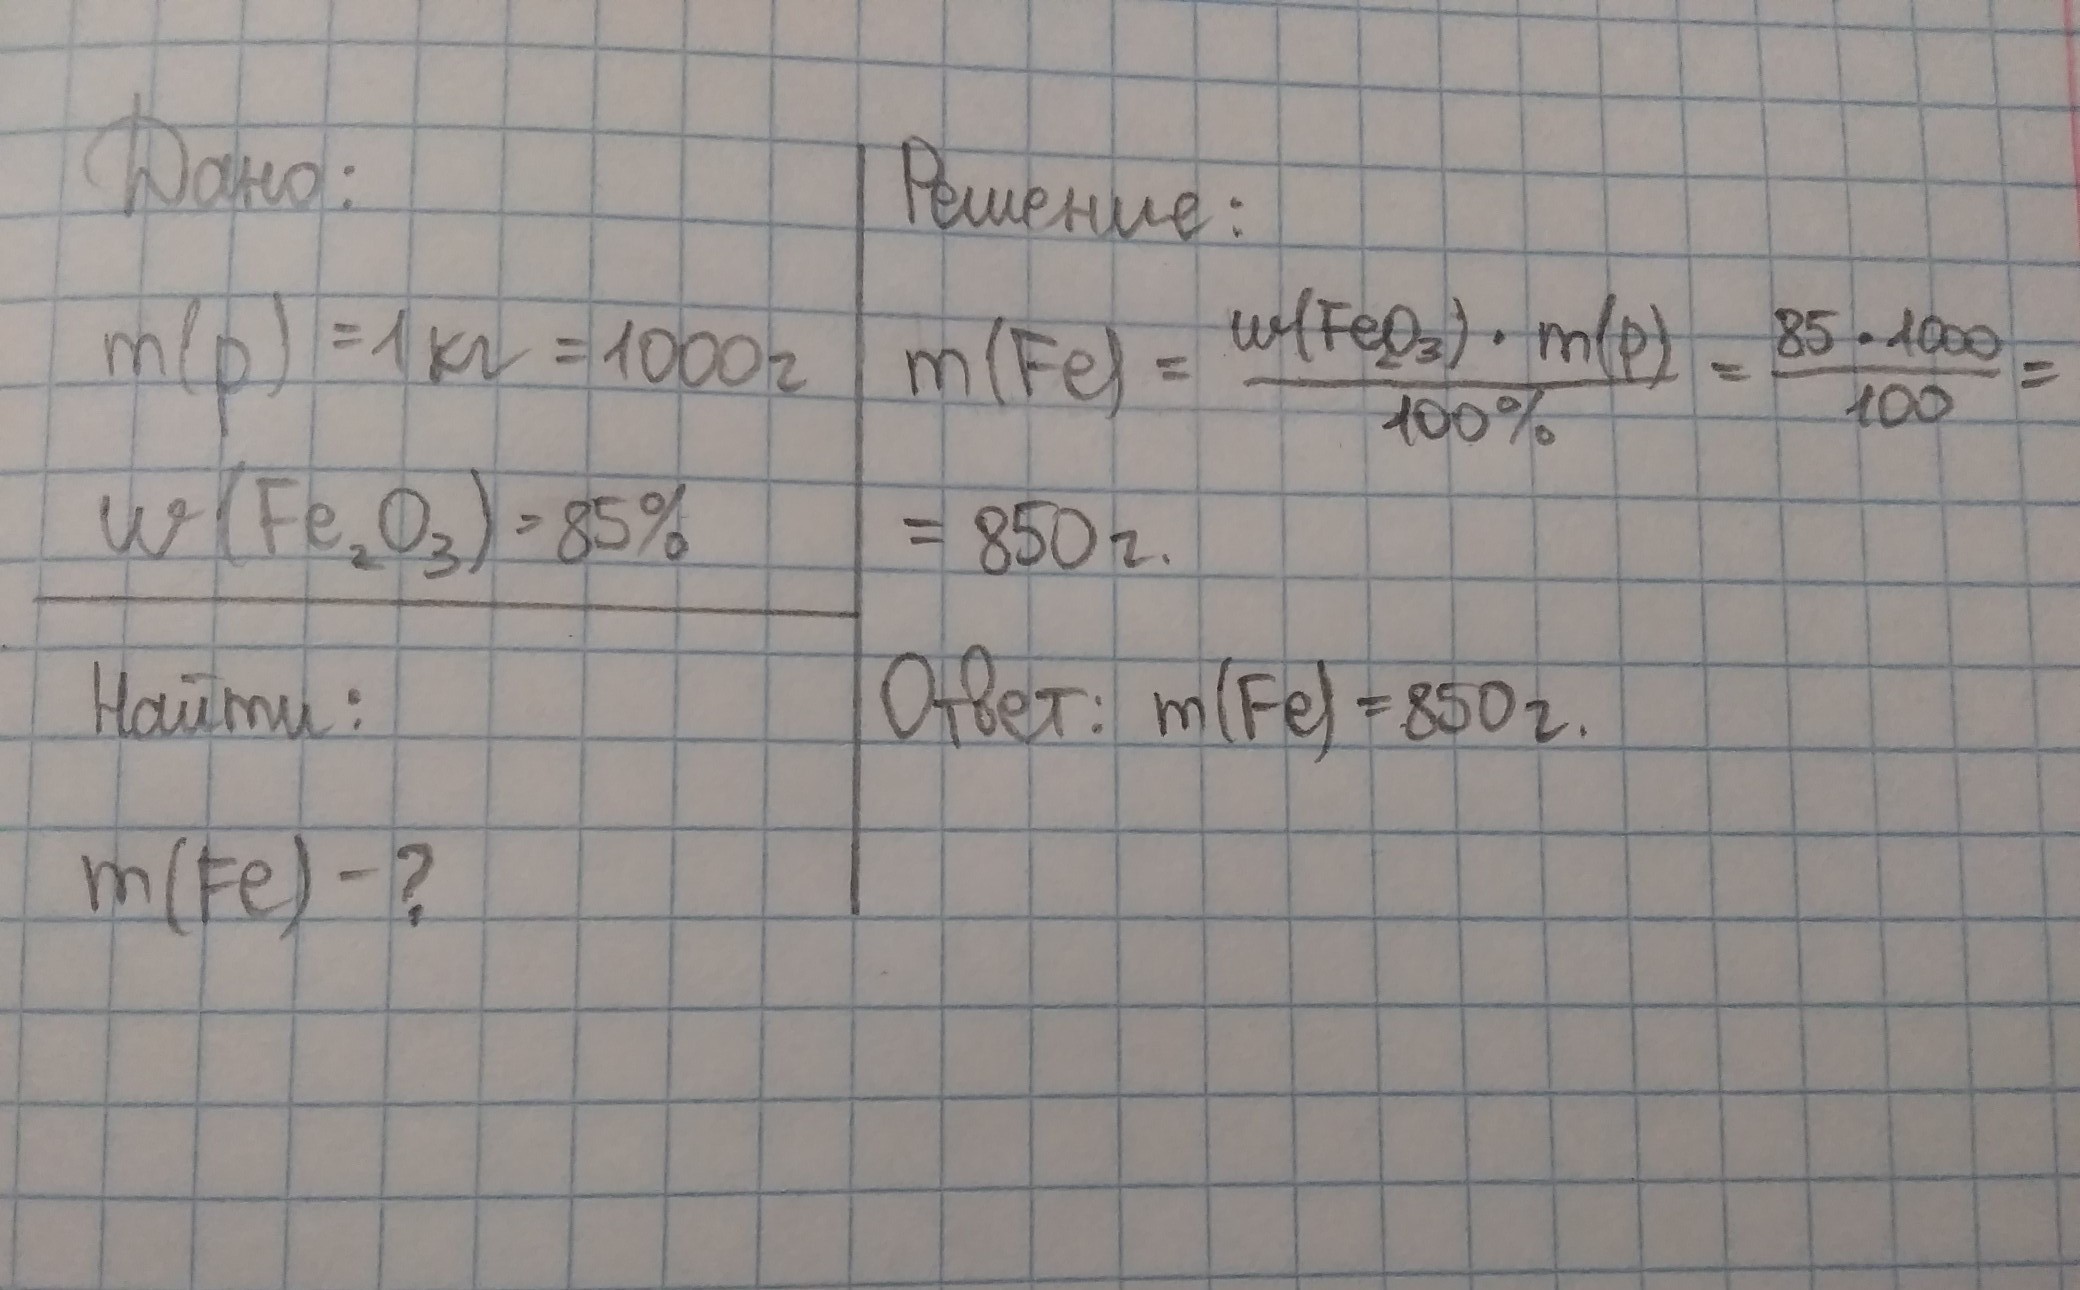 Дано:
m(р) = 1 кг = 1000 г
w(Fe₂O₃) = 85%
Найти:
m(Fe) - ?
Решение:
m(Fe) = w(Fe₂O₃) · m(р) / 100% = 85 · 1000 / 100 =
= 850 г.
Ответ: m(Fe) = 850 г.